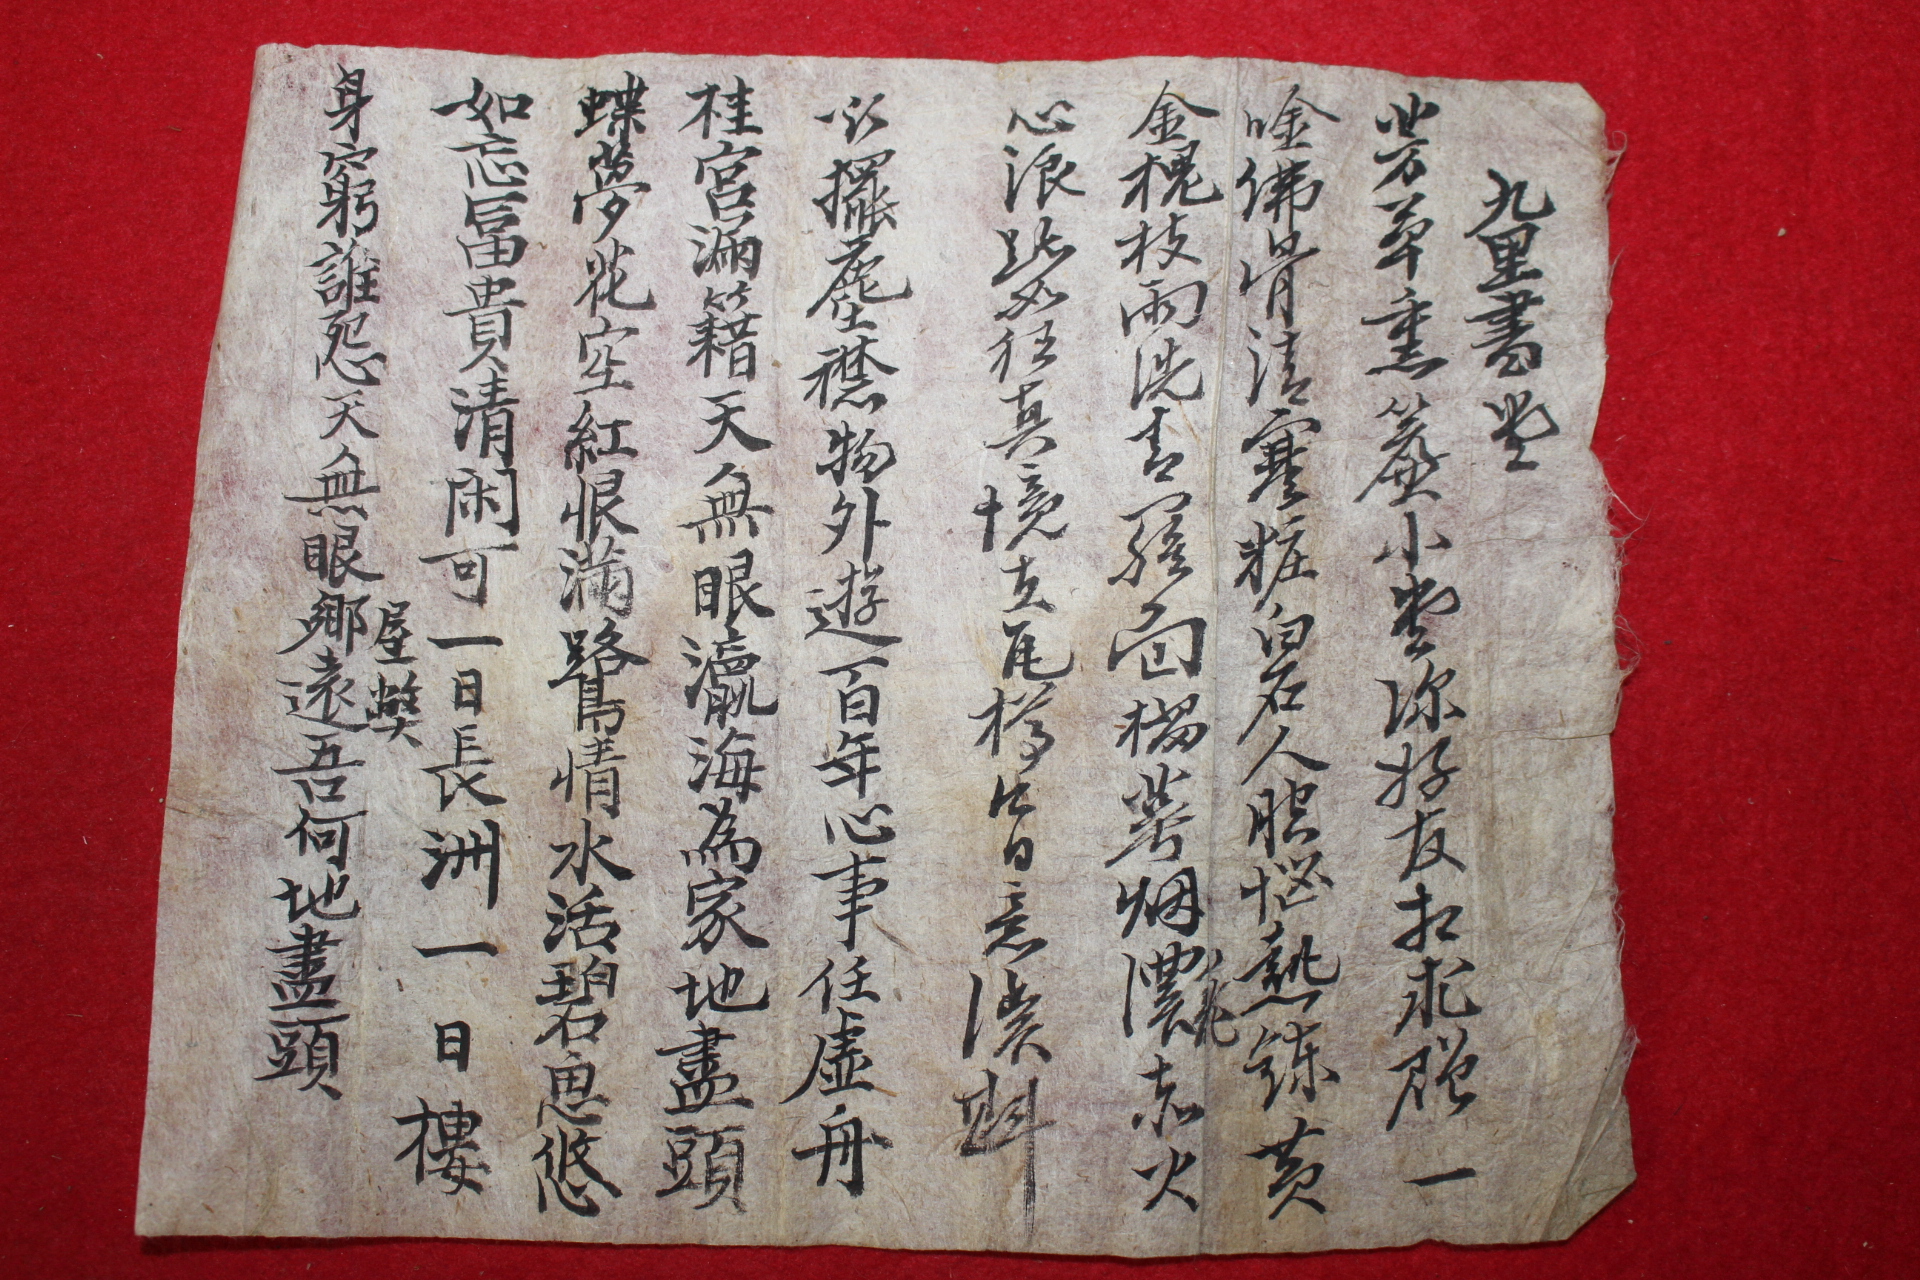 九里書堂
芳草熏簾小堂深好友相求贈一
唫佛骨清寒粧白石人腔惱熱鍊黃
金槐枝雨洗青羅面榴萼烟濃赤火
心浪跡如狂真境在瓦樽皆日意
必擺塵襟物外遊百年心事任虛舟
桂宮漏籍天無眼瀛海為家地盡頭
蝶夢花空紅恨滿路鷰情水活碧思悠
如忘富貴清閑可一日長洲一日樓
屋獘
身窮誰怨天無眼鄉遠吾何地盡頭